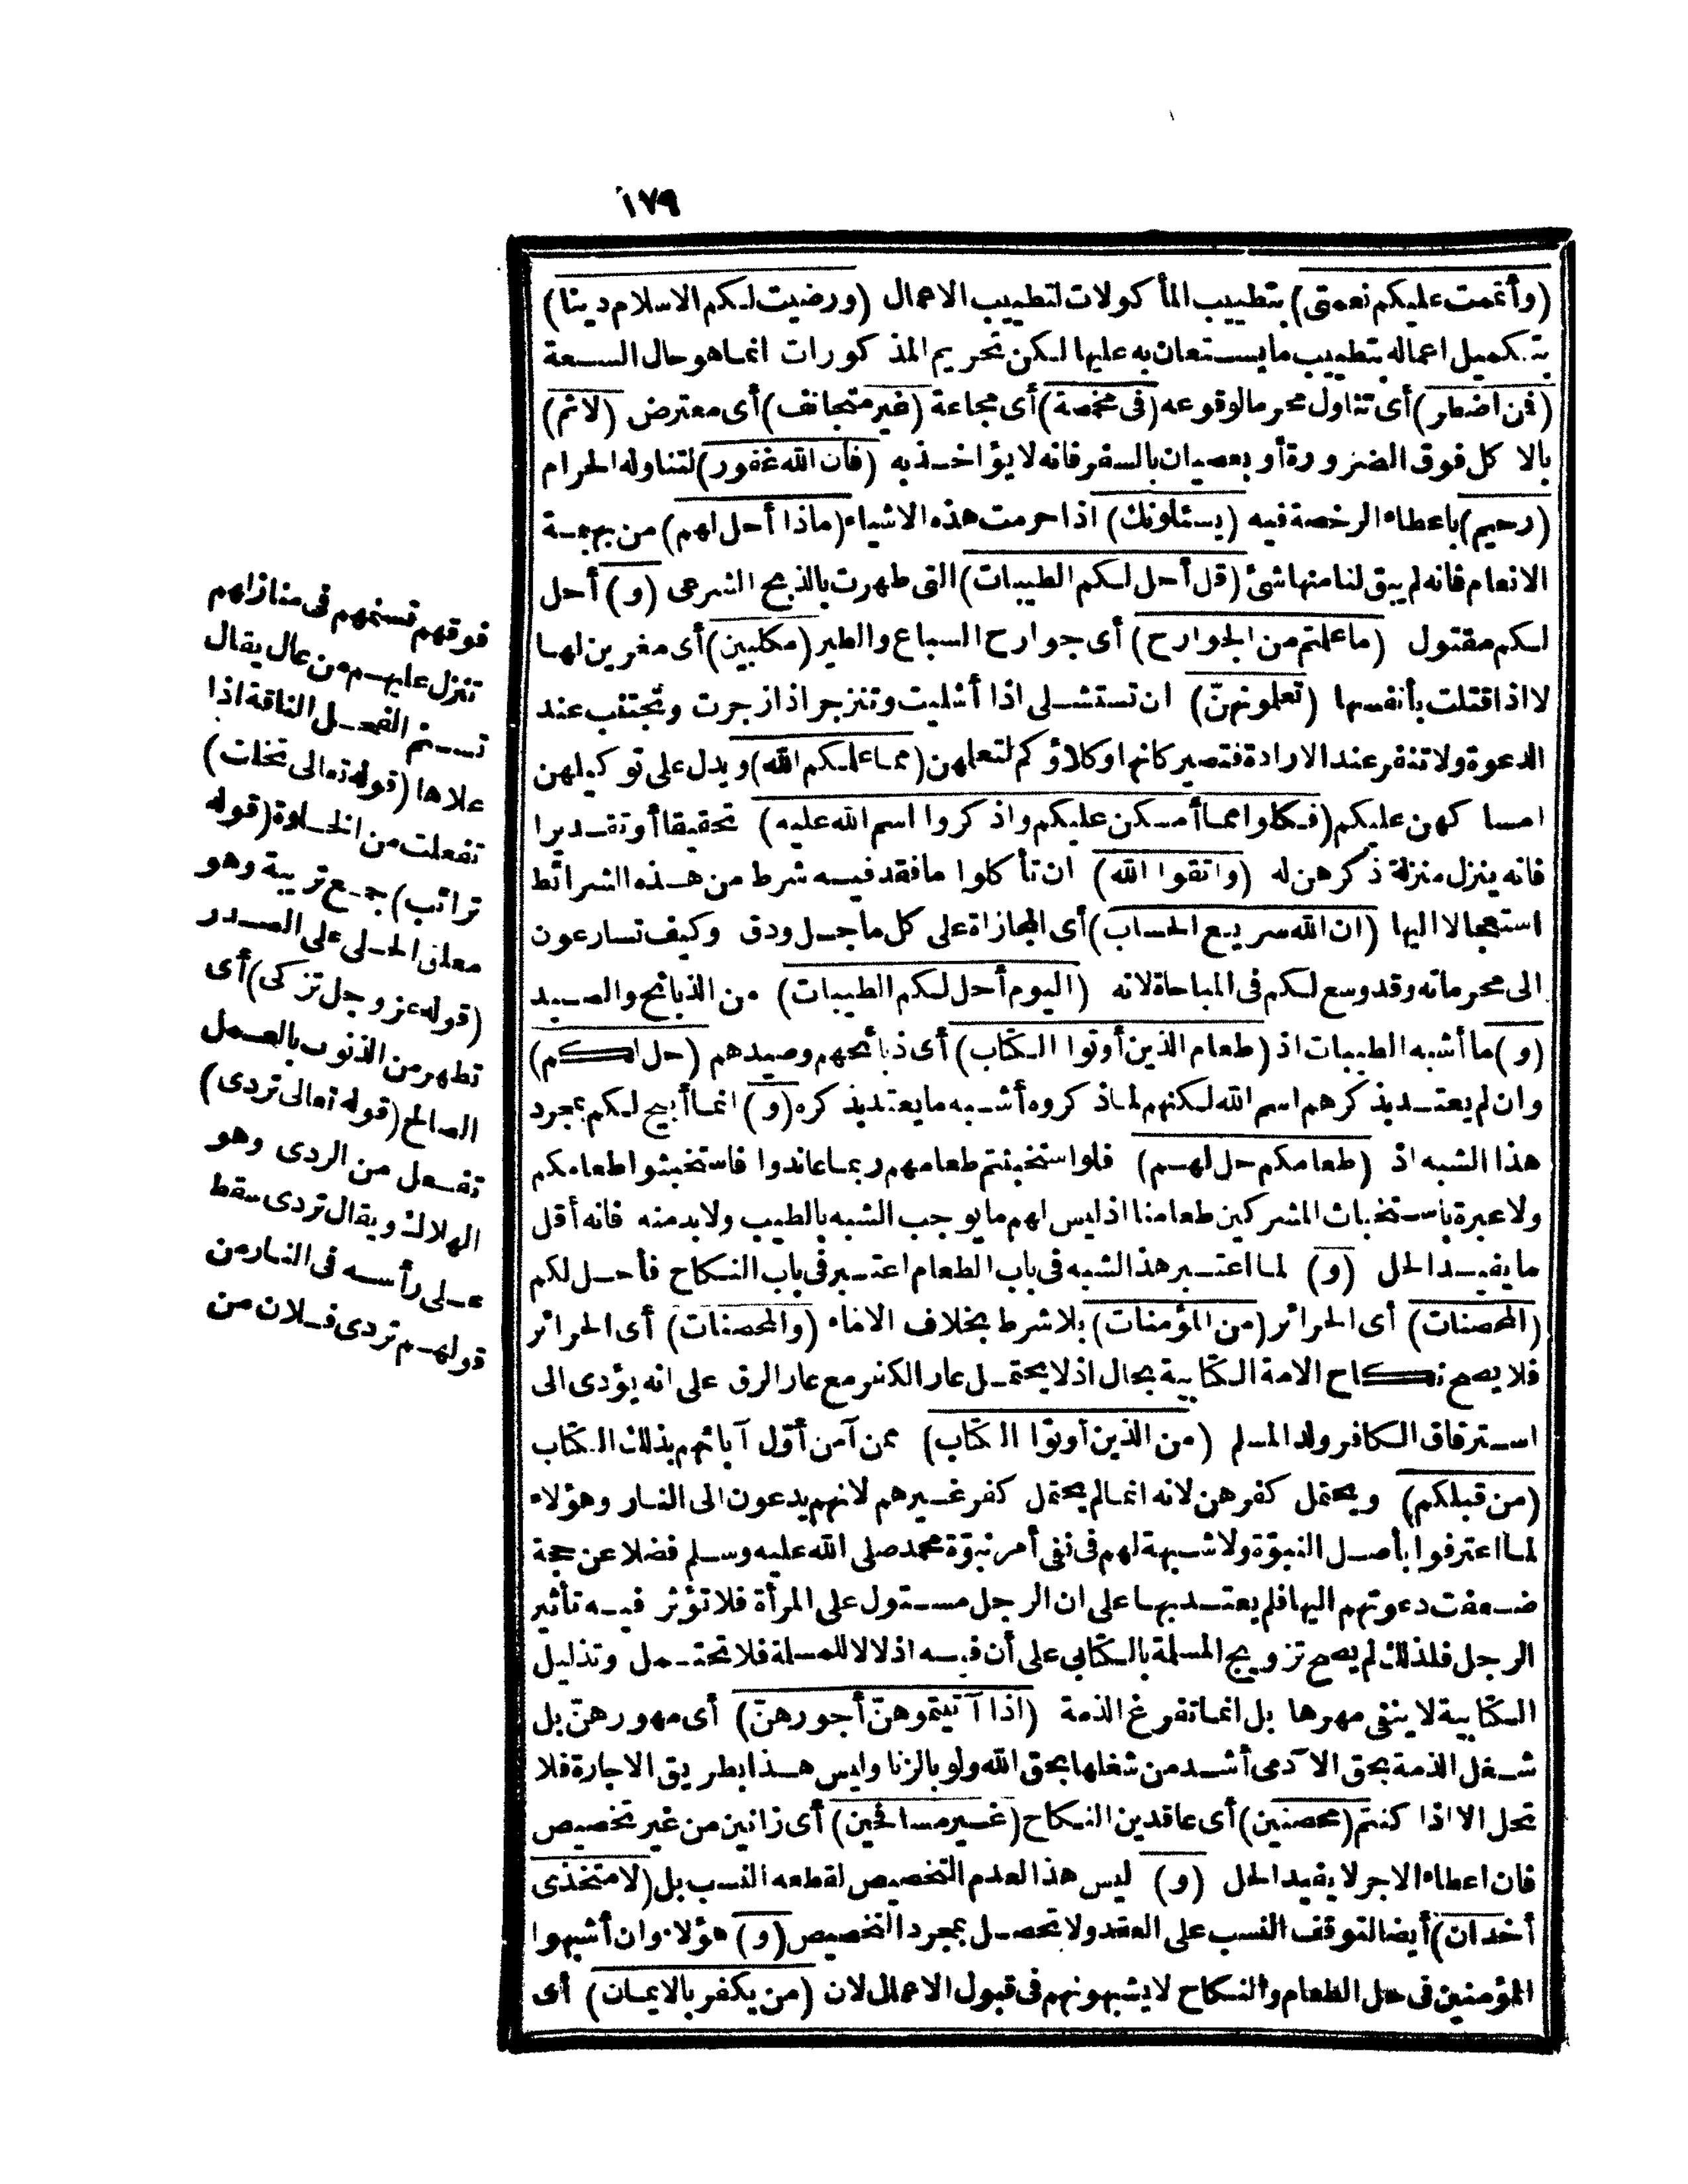 ١٧٩
(وأتممت عليكم نعمتى) بتطييب المأكولات لتطييب الاعمال (ورضيت لكم الاسلام دينا)
بتكميل اعماله بتطييب ما يستعان به عليها لكن تحريم المذكورات انما هو حال السعة
(فمن اضطر) أى تناول محرما لوقوعه (فى مخمصة) أى مجاعة (غير متجانف) أى معترض (لاثم)
بالاكل فوق الضرورة أو بعصيان بالسفر فانه لا يؤاخذ به (فان الله غفور) لتناوله الحرام
(رحيم) باعطاء الرخصة فيه (يسئلونك) اذا حرمت هذه الاشياء (ماذا أحل لهم) من بهيمة
الانعام فانه لم يبق لنا منها شئ (قل أحل لكم الطيبات) التى طهرت بالذبح الشرعى (و) أحل
لكم مقتول (ما علمتم من الجوارح) أى جوارح السباع والطير (مكلبين) أى مغرين لها
لا اذا قتلت بأنفسها (تعلمونهنّ) ان تستشلى اذا أشليت وتنزجر اذ ازجرت وتجتنب عند
الدعوة ولا تنفر عند الارادة فتصير كانها وكلاؤكم لتعلمهن (مما علمكم الله) ويدل على توكيلهن
امساكهن عليكم (فكلوا مما أمسكن عليكم واذكروا اسم الله عليه) تحقيقا أو تقديرا
فانه ينزل منزلة ذكرهن له (واتقوا الله) ان تأكلوا ما فقد فيه شرط من هذه الشرائط
استعجالا اليها (ان الله سريع الحساب) أى المجازاة على كل ما جل ودق وكيف تسارعون
الى محرماته وقد وسع لكم فى المباحاة لانه (اليوم أحل لكم الطيبات) من الذبائح والصيد
(و) ما أشبه الطيبات اذ (طعام الذين أوتوا الكتاب) أى ذبائحهم وصيدهم (حل لكم)
وان لم يعتد بذكرهم اسم الله لكنهم لما ذكروه أشبه ما يعتد بذكره (و) انما أبيح لكم بمجرد
هذا الشبه اذ (طعامكم حل لهم) فلو استخبثتم طعامهم ربما عاندوا فاستخبثوا طعامكم
ولا عبرة باستخباث المشركين طعامنا اذ ليس لهم ما يوجب الشبه بالطيب ولا بد منه فانه أقل
ما يفيد الحل (و) لما اعتبر هذا الشبه فى باب الطعام اعتبر فى باب النكاح فأحل لكم
(المحصنات) أى الحرائر (من المؤمنات) بلا شرط بخلاف الاماء (والمحصنات) أى الحرائر
فلا يصح نكاح الامة الكتابية بحال اذ لا يحتمل عار الكفر مع عار الرق على انه يؤدى الى
استرقاق الكافر ولد المسلم (من الذين أوتوا الكتاب) ممن آمن أوّل آبائهم بذلك الكتاب
(من قبلكم) ويحتمل كفرهن لانه انما لم يحتمل كفر غيرهم لانهم يدعون الى النار وهؤلاء
لما اعترفوا بأصل النبوّة ولا شبهة لهم فى نفى أمر نبوّة محمد صلى الله عليه وسلم فضلا عن حجة
ضعفت دعوتهم اليها فلم يعتد بها على ان الرجل مستول على المرأة فلا تؤثر فيه تأثير
الرجل فلذلك لم يصح تزويج المسلمة بالكتابى على أن فيه اذلالا للمسلة فلا تحتمل وتذليل
الكتابية لا ينفى مهرها بل انما تفرغ الذمة (اذا آتيتموهنّ أجورهنّ) أى مهورهنّ بل
شغل الذمة بحق الآدمى أشد من شغلها بحق الله ولو بالزنا وليس هذا بطريق الاجارة فلا
تحل الا اذا كنتم (محصنين) أى عاقدين النكاح (غير مسافحين) أى زانين من غير تخصيص
فان اعطاء الاجر لا يفيد الحل (و) ليس هذا لعدم التخصيص لقطعه النسب بل (لا متخذى
أخدان) أيضا لتوقف النسب على العقد ولا تحصل بمجرد التخصيص (و) هؤلاء وان أشبهوا
المؤمنين فى حل الطعام والنكاح لا يشبهونهم فى قبول الاعمال لان (من يكفر بالايمان) أى
فوقهم تسنمهم فى منازلهم
تنزل عليهم من عال يقال
تسنم الفحل الناقة اذا
علاها (قوله تعالى تخلت)
تفعلت من الخلوة (قوله
ترائب) جمع تريبة وهو
معلق الحلى على الصدر
(قوله عز وجل تزكى) أى
تطهر من الذنوب بالعمل
الصالح (قوله تعالى تردى)
تفعل من الردى وهو
الهلاك ويقال تردى سقط
على رأسه فى النار من
قولهم تردى فلان من